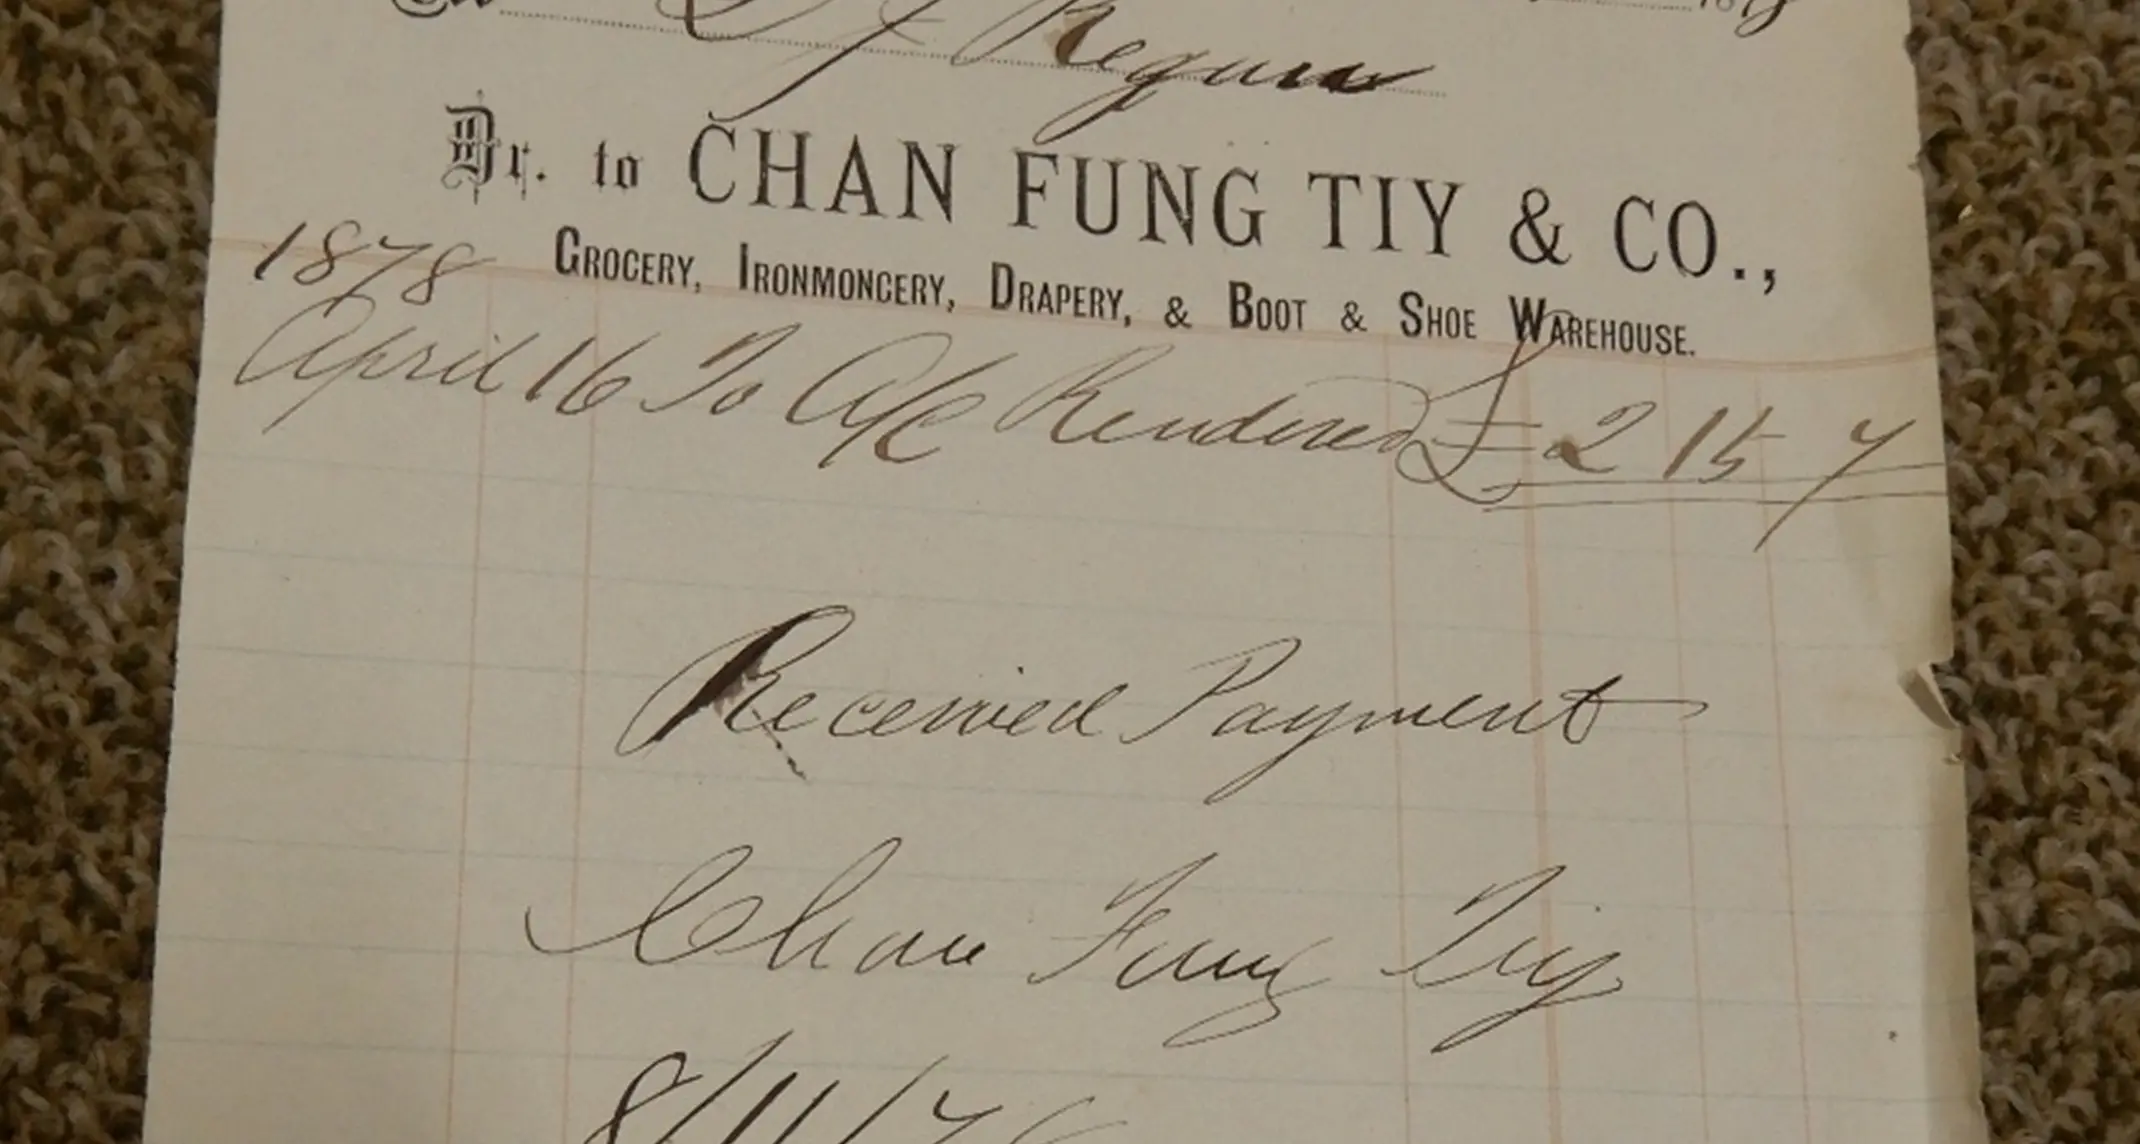 Dr. to CHAN FUNG TIY & CO.,
GROCERY, IRONMONGERY, DRAPERY, & BOOT & SHOE WAREHOUSE.
1878
April 16 To A/C Rendered £ 2 15 7
Received Payment
Chan Fung Tiy
8/11/7